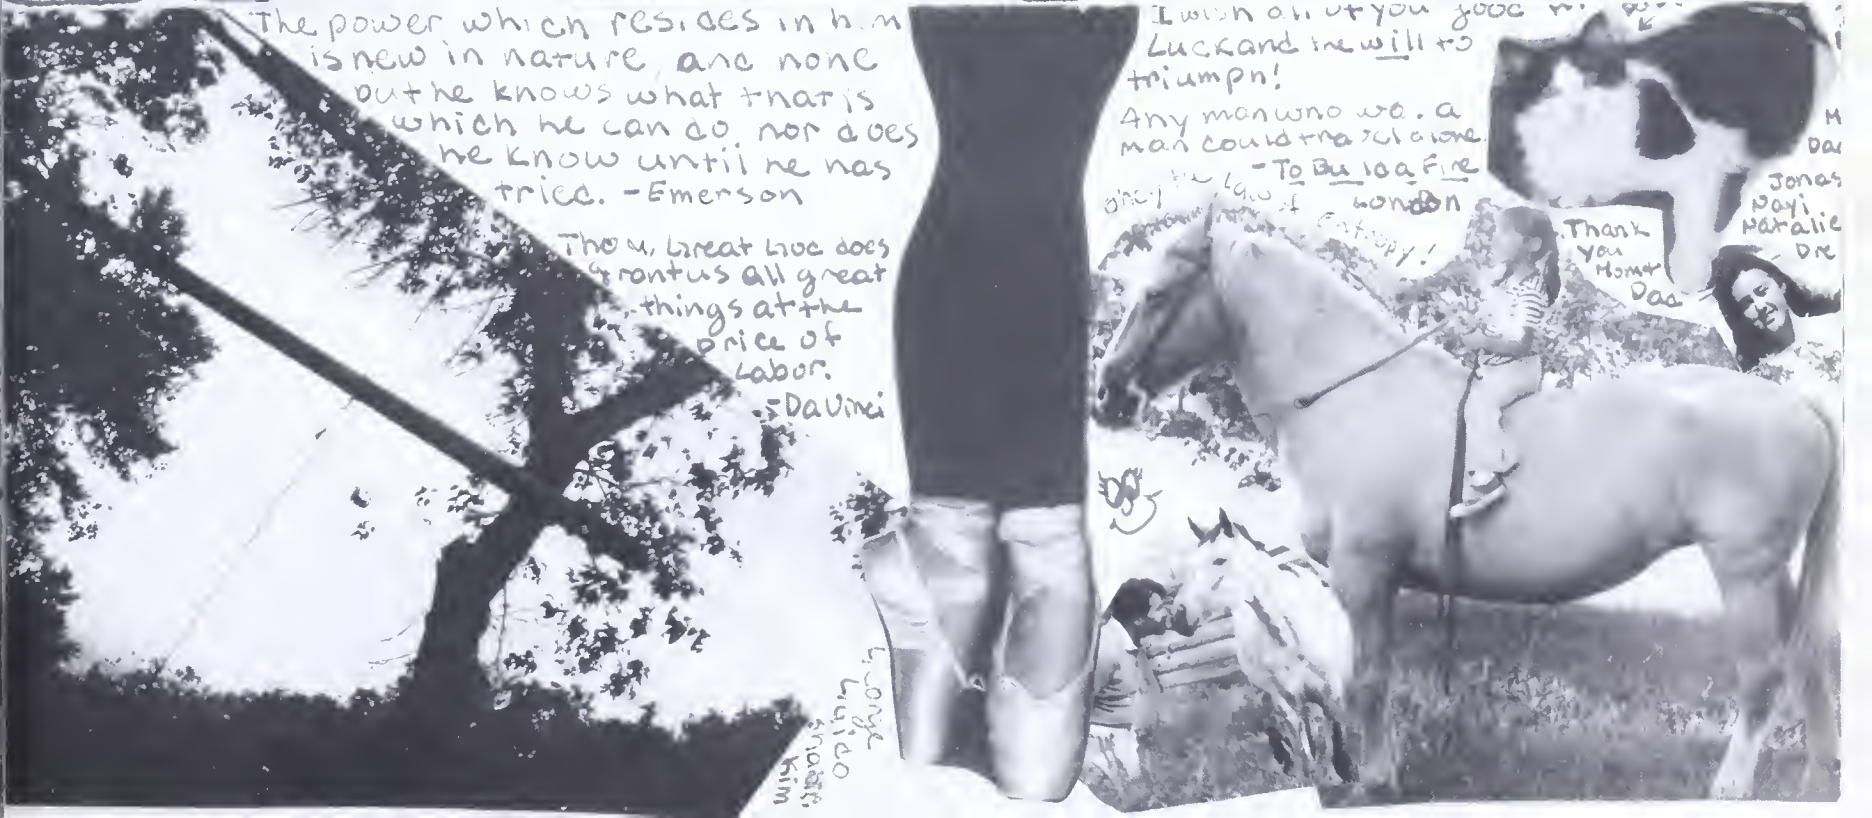 The power which resides in him
is new in nature, and none
but he knows what that is
which he can do, nor does
he know until he has
tried. - Emerson
Thou, Great God does
grant us all great
things at the
price of
Labor.
- Da Vinci
I wish all of you good
Luck and the will to
triumph!
Any man who was a
man could travel alone.
- To Build a Fire
London
Obey the Law of Entropy!
Thank
you
Mom +
Dad
Jonas
Nayi
Natalie
Dre
George
Guido
Kim